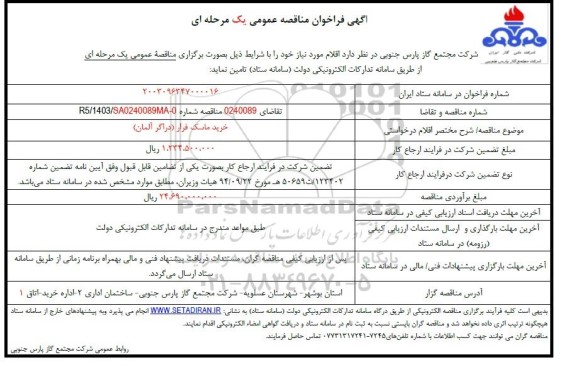 آگهی فراخوان مناقصه عمومی یک مرحله ای
شرکت مجتمع گاز پارس جنوبی در نظر دارد اقلام مورد نیاز خود را با شرایط ذیل بصورت برگزاری مناقصهٔ عمومی یک مرحله ای
از طریق سامانه تدارکات الکترونیکی دولت (سامانه ستاد) تامین نماید:
شماره فراخوان در سامانه ستاد ایران
۲۰۰۳۰۹۶۳۴۷۰۰۰۰۱۶
شماره مناقصه و تقاضا
تقاضای 0240089 مناقصه شماره R5/1403/SA0240089MA-0
موضوع مناقصه/ شرح مختصر اقلام درخواستی
خرید ماسک فرار (دراگر آلمان)
مبلغ تضمین شرکت در فرایند ارجاع کار
۱.۲۳۴.۵۰۰.۰۰۰ ریال
نوع تضمین شرکت درفرایند ارجاع کار
تضمین شرکت در فرآیند ارجاع کار بصورت یکی از تضامین قابل قبول وفق آیین نامه تضمین شماره
۱۲۳۴۰۲/ت۵۰۶۵۹ هـ مورخ ۹۴/۰۹/۲۲ هیات وزیران، مطابق موارد مشخص شده در سامانه ستاد می‌باشد.
مبلغ برآوردی مناقصه
۲۴.۶۹۰.۰۰۰.۰۰۰ ریال
آخرین مهلت دریافت اسناد ارزیابی کیفی در سامانه ستاد
آخرین مهلت بارگذاری و ارسال مستندات ارزیابی کیفی
(رزومه) در سامانه ستاد
طبق مواعد مندرج در سامانه تدارکات الکترونیکی دولت
آخرین مهلت بارگزاری پیشنهادات فنی/ مالی در سامانه ستاد
پس از ارزیابی کیفی مناقصه گران، مستندات دریافت پیشنهاد فنی و مالی بهمراه برنامه زمانی از طریق سامانه
ستاد ارسال می‌گردد.
آدرس مناقصه گزار
استان بوشهر- شهرستان عسلویه- شرکت مجتمع گاز پارس جنوبی- ساختمان اداری ۲-اداره خرید-اتاق ۱
بدیهی است کلیه فرآیند برگزاری مناقصه الکترونیکی از طریق درگاه سامانه تدارکات الکترونیکی دولت (سامانه ستاد) به نشانی: WWW.SETADIRAN.IR انجام می پذیرد وبه پیشنهادهای خارج از سامانه ستاد
هیچگونه ترتیب اثری داده نخواهد شد و مناقصه گران بایستی نسبت به ثبت نام در سامانه ستاد و دریافت گواهی امضاء الکترونیکی اقدام نمایند.
مناقصه گران می توانند جهت کسب اطلاعات با شماره تلفن‌های ۷۲۴۵-۰۷۷۳۱۳۱۷۲۴۱ تماس حاصل فرمایند.
روابط عمومی شرکت مجتمع گاز پارس جنوبی
ParsNamadData
۰۲۱-۸۸۳۴۹۶۷۰-۵